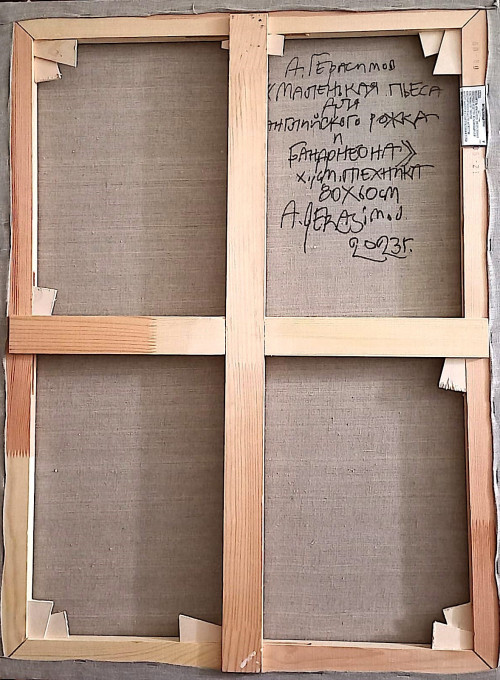 А. Герасимов
«Маленькая пьеса
для
английского рожка
и
бандонеона»
х., см. техника
80х60см
A. Gerasimov
2023г.